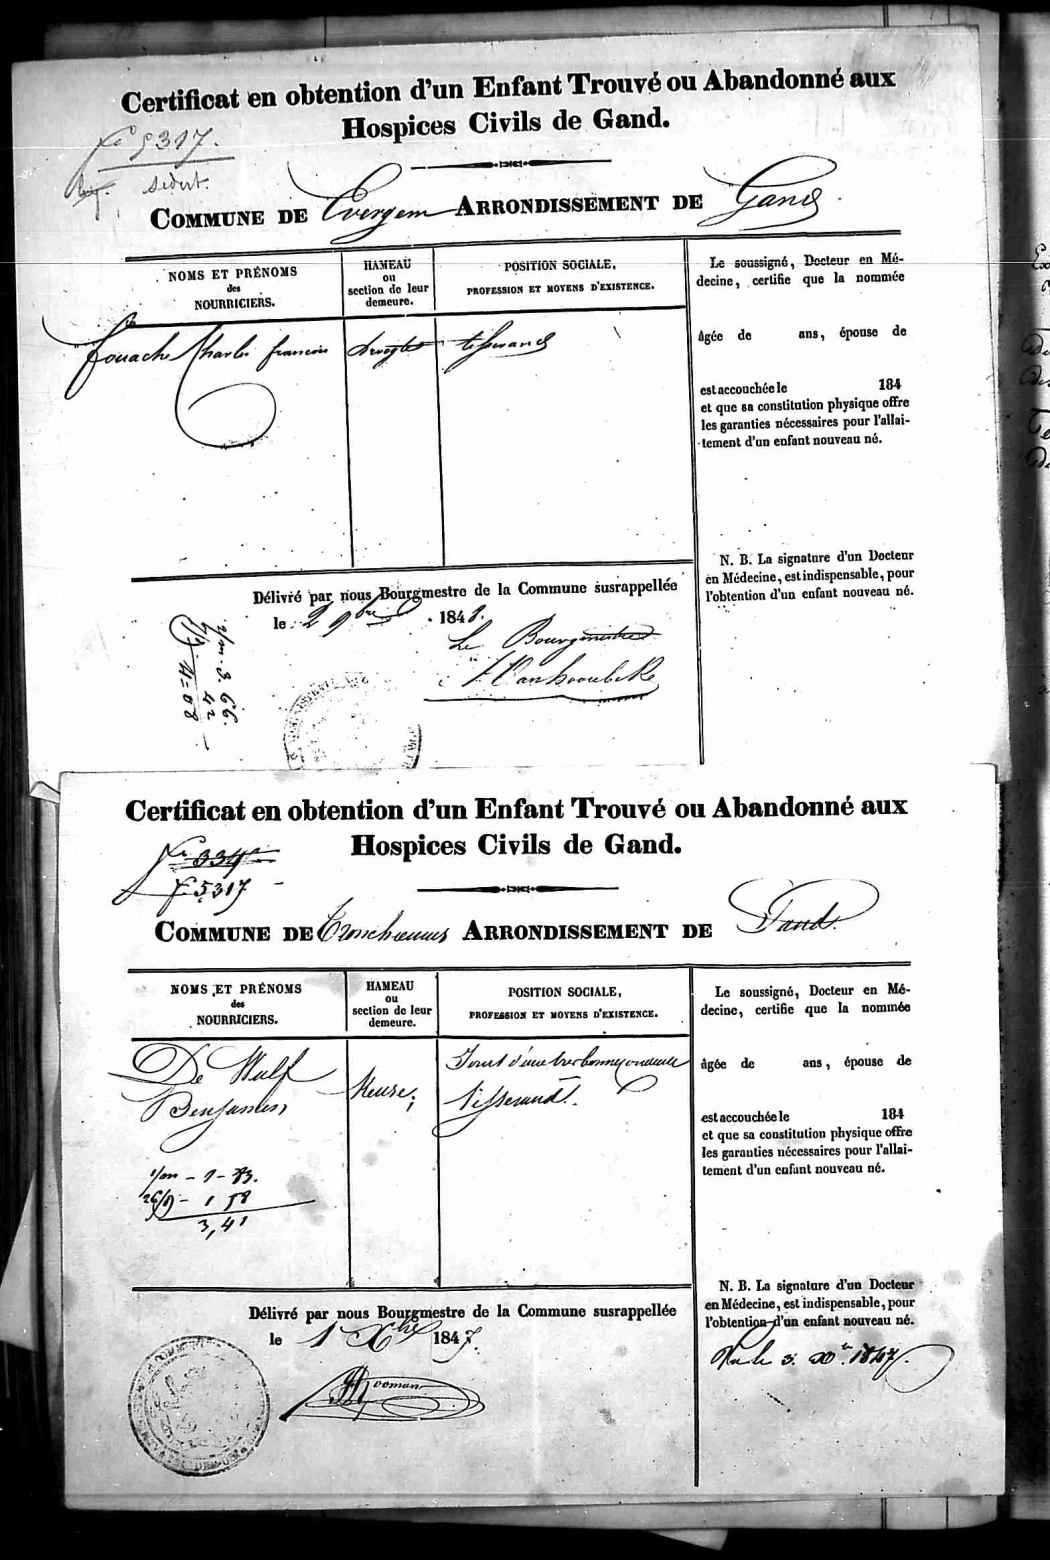 Certificat en obtention d'un Enfant Trouvé ou Abandonné aux
Hospices Civils de Gand.
5317.
COMMUNE DE Evergem ARRONDISSEMENT DE Gand
NOMS ET PRÉNOMS
des
NOURRICIERS.
HAMEAU
ou
section de leur
demeure.
POSITION SOCIALE,
PROFESSION ET MOYENS D'EXISTENCE.
Fouache Charles francois
tisserand
Le soussigné, Docteur en Mé-
decine, certifie que la nommée
âgée de ans, épouse de
est accouchée le 184
et que sa constitution physique offre
les garanties nécessaires pour l'allai-
tement d'un enfant nouveau né.
N. B. La signature d'un Docteur
en Médecine, est indispensable, pour
l'obtention d'un enfant nouveau né.
Délivré par nous Bourgmestre de la Commune susrappellée
le 2 9bre 1848.
Le Bourgmestre
3 66
42
4=08
Certificat en obtention d'un Enfant Trouvé ou Abandonné aux
Hospices Civils de Gand.
334
5317
COMMUNE DE Tronchiennes ARRONDISSEMENT DE Gand.
NOMS ET PRÉNOMS
des
NOURRICIERS.
HAMEAU
ou
section de leur
demeure.
POSITION SOCIALE,
PROFESSION ET MOYENS D'EXISTENCE.
De Wulf
Benjamin
Keuse;
Jouit d'une tres bonne conduite
Tisserand.
1/m - 1 - 83.
26/9 - 1 58
3,41
Le soussigné, Docteur en Mé-
decine, certifie que la nommée
âgée de ans, épouse de
est accouchée le 184
et que sa constitution physique offre
les garanties nécessaires pour l'allai-
tement d'un enfant nouveau né.
N. B. La signature d'un Docteur
en Médecine, est indispensable, pour
l'obtention d'un enfant nouveau né.
Délivré par nous Bourgmestre de la Commune susrappellée
le 1 Xbre 1847.
Vu le 3. Xbr 1847.
Rooman